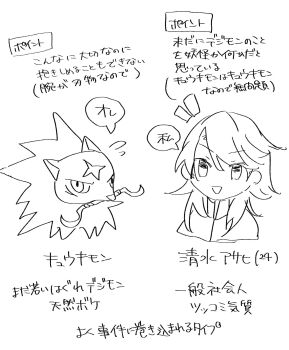 ポイント
こんなに大切なのに
抱きしめることもできない
(腕が刃物なので)
ポイント
未だにデジモンのこと
を妖怪か何かだと
思っている
(キュウキモンはキュウキモン
なので無問題)
オレ
私
キュウキモン
まだ若いはぐれデジモン
天然ボケ
清水アサヒ(24)
一般社会人
ツッコミ気質
よく事件に巻き込まれるタイプ